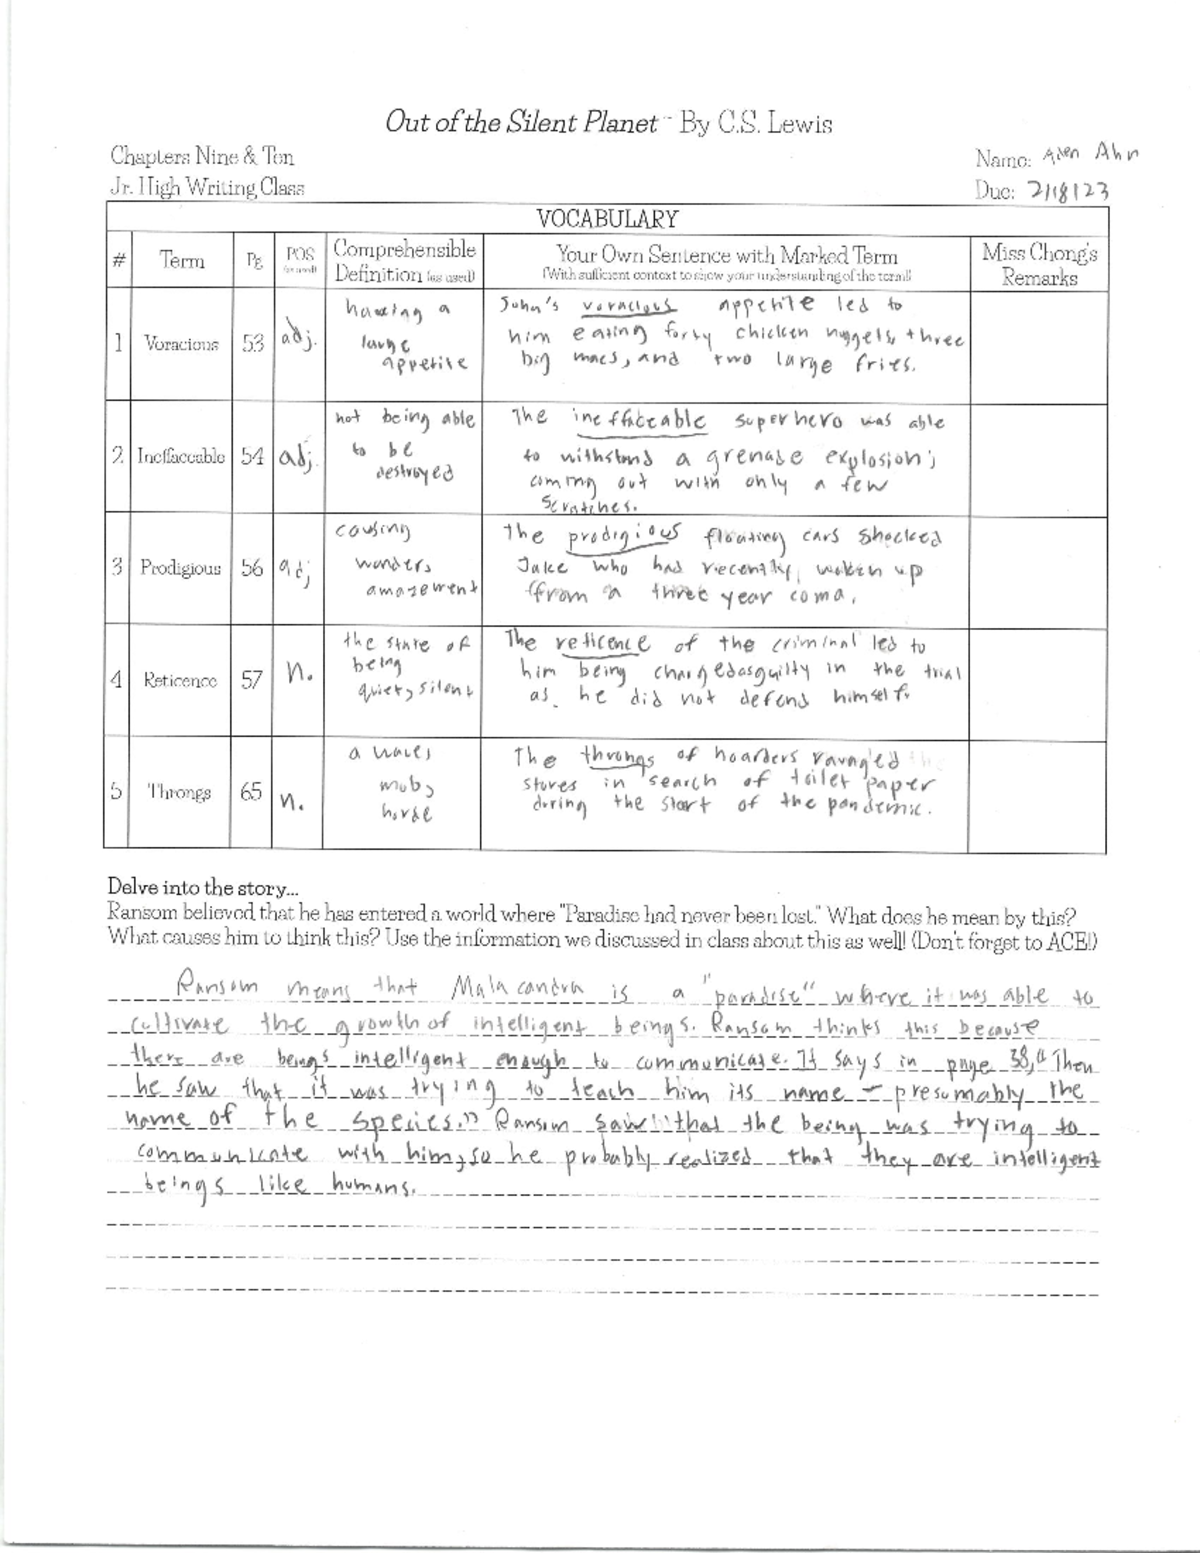 Out of the Silent Planet - By C.S. Lewis
Chapters Nine & Ten
Name: Ahn
Jr. High Writing Class
Due: 2/18/23
VOCABULARY
# Term Pg POS (as used) Comprehensible Definition (as used) Your Own Sentence with Marked Term (With sufficient context to show your understanding of the term!) Miss Chong's Remarks
1 Voracious 53 adj.
having a
large
appetite
John's voracious appetite led to
him eating forty chicken nuggets, three
big macs, and two large fries.
2 Ineffaceable 54 adj.
not being able
to be
destroyed
The ineffaceable superhero was able
to withstand a grenade explosion;
coming out with only a few
scratches.
3 Prodigious 56 adj
causing
wonders
amazement
The prodigious floating cars shocked
Jake who had recently woken up
from a three year coma.
4 Reticence 57 n.
the state of
being
quiet, silent
The reticence of the criminal led to
him being charged as guilty in the trial
as he did not defend himself.
5 Throngs 65 n.
a
mob,
horde
The throngs of hoarders ravaged the
stores in search of toilet paper
during the start of the pandemic.
Delve into the story...
Ransom believed that he has entered a world where "Paradise had never been lost." What does he mean by this?
What causes him to think this? Use the information we discussed in class about this as well! (Don't forget to ACE!)
Ransom means that Malacandra is a "paradise" where it was able to
cultivate the growth of intelligent beings. Ransom thinks this because
there are beings intelligent enough to communicate. It says in page 38, "Then
he saw that it was trying to teach him its name - presumably the
name of the species." Ransom saw that the being was trying to
communicate with him, so he probably realized that they are intelligent
beings like humans.